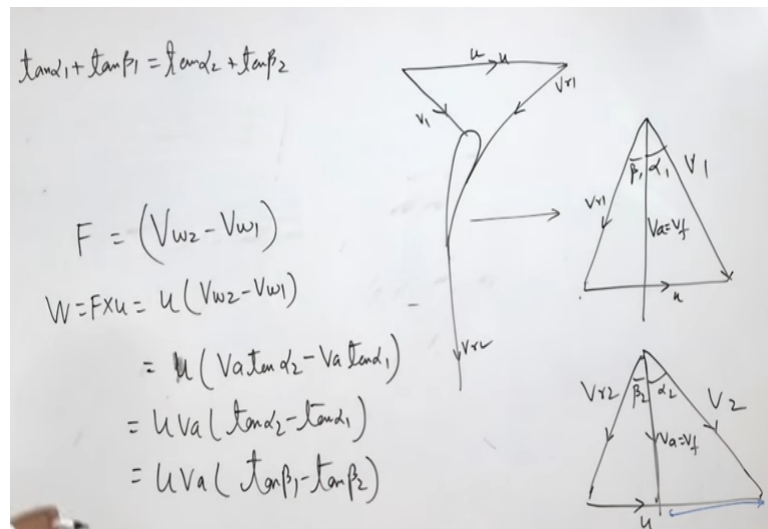 tanα1 + tanβ1 = tanα2 + tanβ2
F = (Vw2 - Vw1)
W = F×u = u(Vw2 - Vw1)
= u(Va tanα2 - Va tanα1)
= uVa(tanα2 - tanα1)
= uVa(tanβ1 - tanβ2)
u u
V1
Vr1
Vr2
β1 α1
Vr1
V1
Va=Vf
u
β2 α2
Vr2
V2
Va=Vf
u